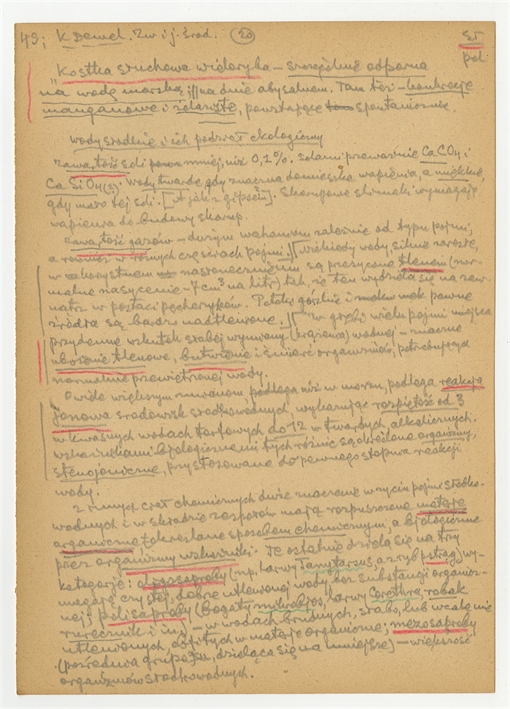 49; K. Demel. Zw. i j. środ. (20)
pol.
"Kostka słuchowa wieloryba – szczególnie odporna
na wodę morską // na dnie abysalnem. Tam też – konkrecje
manganowe i żelaziste, powstające spontanicznie.
wody słodkie i ich podział ekologiczny
zawartość soli poniżej, niż 0,1%. Solami przeważnie CaCO3 i
CaSiO4(?); wody twarde, gdy znaczna domieszka wapienia, a miękkie,
gdy mało tej soli. [A jak z gipsem?]. Skorupowe ślimaki wymagają
wapienia do budowy skorup.
zawartość gazów – dużym wahaniom zależnie od typu pojmi,
a również w różnych częściach pojmi. // niekiedy wody silnie zarosłe,
w korzystnem nasłonecznieniu są przesycone tlenem (nor-
malne nasycenie – 7 cm3 na litr) tak, że ten wydziela się na zew-
nątrz w postaci pęcherzyków. Potoki górskie i pewne
źródła są bardzo nadtlenowe. // w głębi wielu pojmi miejsca
przydenne wskutek słabej wymiany (krążenia) wodnej – znaczne
ubożenie tlenowe, butwienie i śmierć organizmów, potrzebujących
normalnie przewietrzonej wody.
O wiele większym wahaniom podlega niż w morzu, podlega reakcja
jonowa środowisk słodkowodnych, wykazując rozpiętość od 3
w kwaśnych wodach torfowych do 12 w twardych, alkalicznych.
wskaźnikami biologicznemi tych różnic są określone organizmy
stenojoniczne, przystosowane do pewnego stopnia reakcji
wody.
Z innych ciał chemicznych duże znaczenie w życiu pojmi słodko-
wodnych i w składzie zespołów mają rozpuszczone materje
organiczne, określane sposobem chemicznym, a biologicznie
przez organizmy wskaźniki. Te ostatnie dzielą się na trzy
kategorje: oligosaproby (np. larwy Tanytarsus, a z ryb pstrąg), wy-
magające czystej, dobrze utlenionej wody bez substancji organicz-
nej; polisaproby (bogaty mikrobjos, larwy Corethra, robak
rurecznik i in.) – w wodach brudnych, słabo, lub wcale nie
utlenionych, obfitych w materje organiczne; mezosaproby
(pośrednia grupa, dzieląca się na mniejsze) – większość
organizmów słodkowodnych.